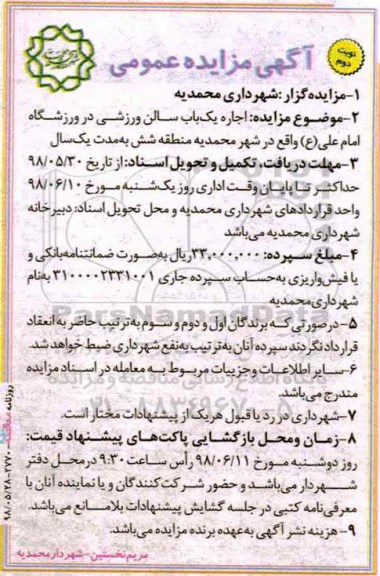 نوبت دوم
آگهی مزایده عمومی
۱-مزایده‌گزار: شهرداری محمدیه
۲-موضوع مزایده: اجاره یک‌باب سالن ورزشی در ورزشگاه
امام علی(ع) واقع در شهر محمدیه منطقه شش به‌مدت یک‌سال
۳-مهلت دریافت، تکمیل و تحویل اسناد: از تاریخ ۹۸/۰۵/۳۰
حداکثر تا پایان وقت اداری روز یک‌شنبه مورخ ۹۸/۰۶/۱۰
واحد قراردادهای شهرداری محمدیه و محل تحویل اسناد: دبیرخانه
شهرداری محمدیه می‌باشد
۴-مبلغ سپرده: ۳۳,۰۰۰,۰۰۰ ریال به‌صورت ضمانتنامه‌بانکی و
یا فیش‌واریزی به‌حساب سپرده جاری ۳۱۰۰۰۰۲۳۳۱۰۰۱ به‌نام
شهرداری‌محمدیه
۵-درصورتی‌که برندگان اول و دوم و سوم به‌ترتیب حاضر به‌انعقاد
قرارداد نگردند سپرده آنان به‌ترتیب به‌نفع شهرداری ضبط خواهد شد.
۶-سایر اطلاعات و جزییات مربوط به معامله در اسناد مزایده
مندرج می‌باشد.
۷-شهرداری در رد یا قبول هریک از پیشنهادات مختار است.
۸-زمان و محل بازگشایی پاکت‌های پیشنهاد قیمت:
روز دوشنبه مورخ ۹۸/۰۶/۱۱ رأس ساعت ۹:۳۰ درمحل دفتر
شهردار می‌باشد و حضور شرکت‌کنندگان و یا نماینده آنان با
معرفی‌نامه کتبی در جلسه گشایش پیشنهادات بلامانع می‌باشد.
۹-هزینه نشر آگهی به‌عهده برنده مزایده می‌باشد.
مریم نخستین-شهردار محمدیه
روزنامه
۹۸/۰۵/۲۸-۲۷۷۰
ParsNamadData